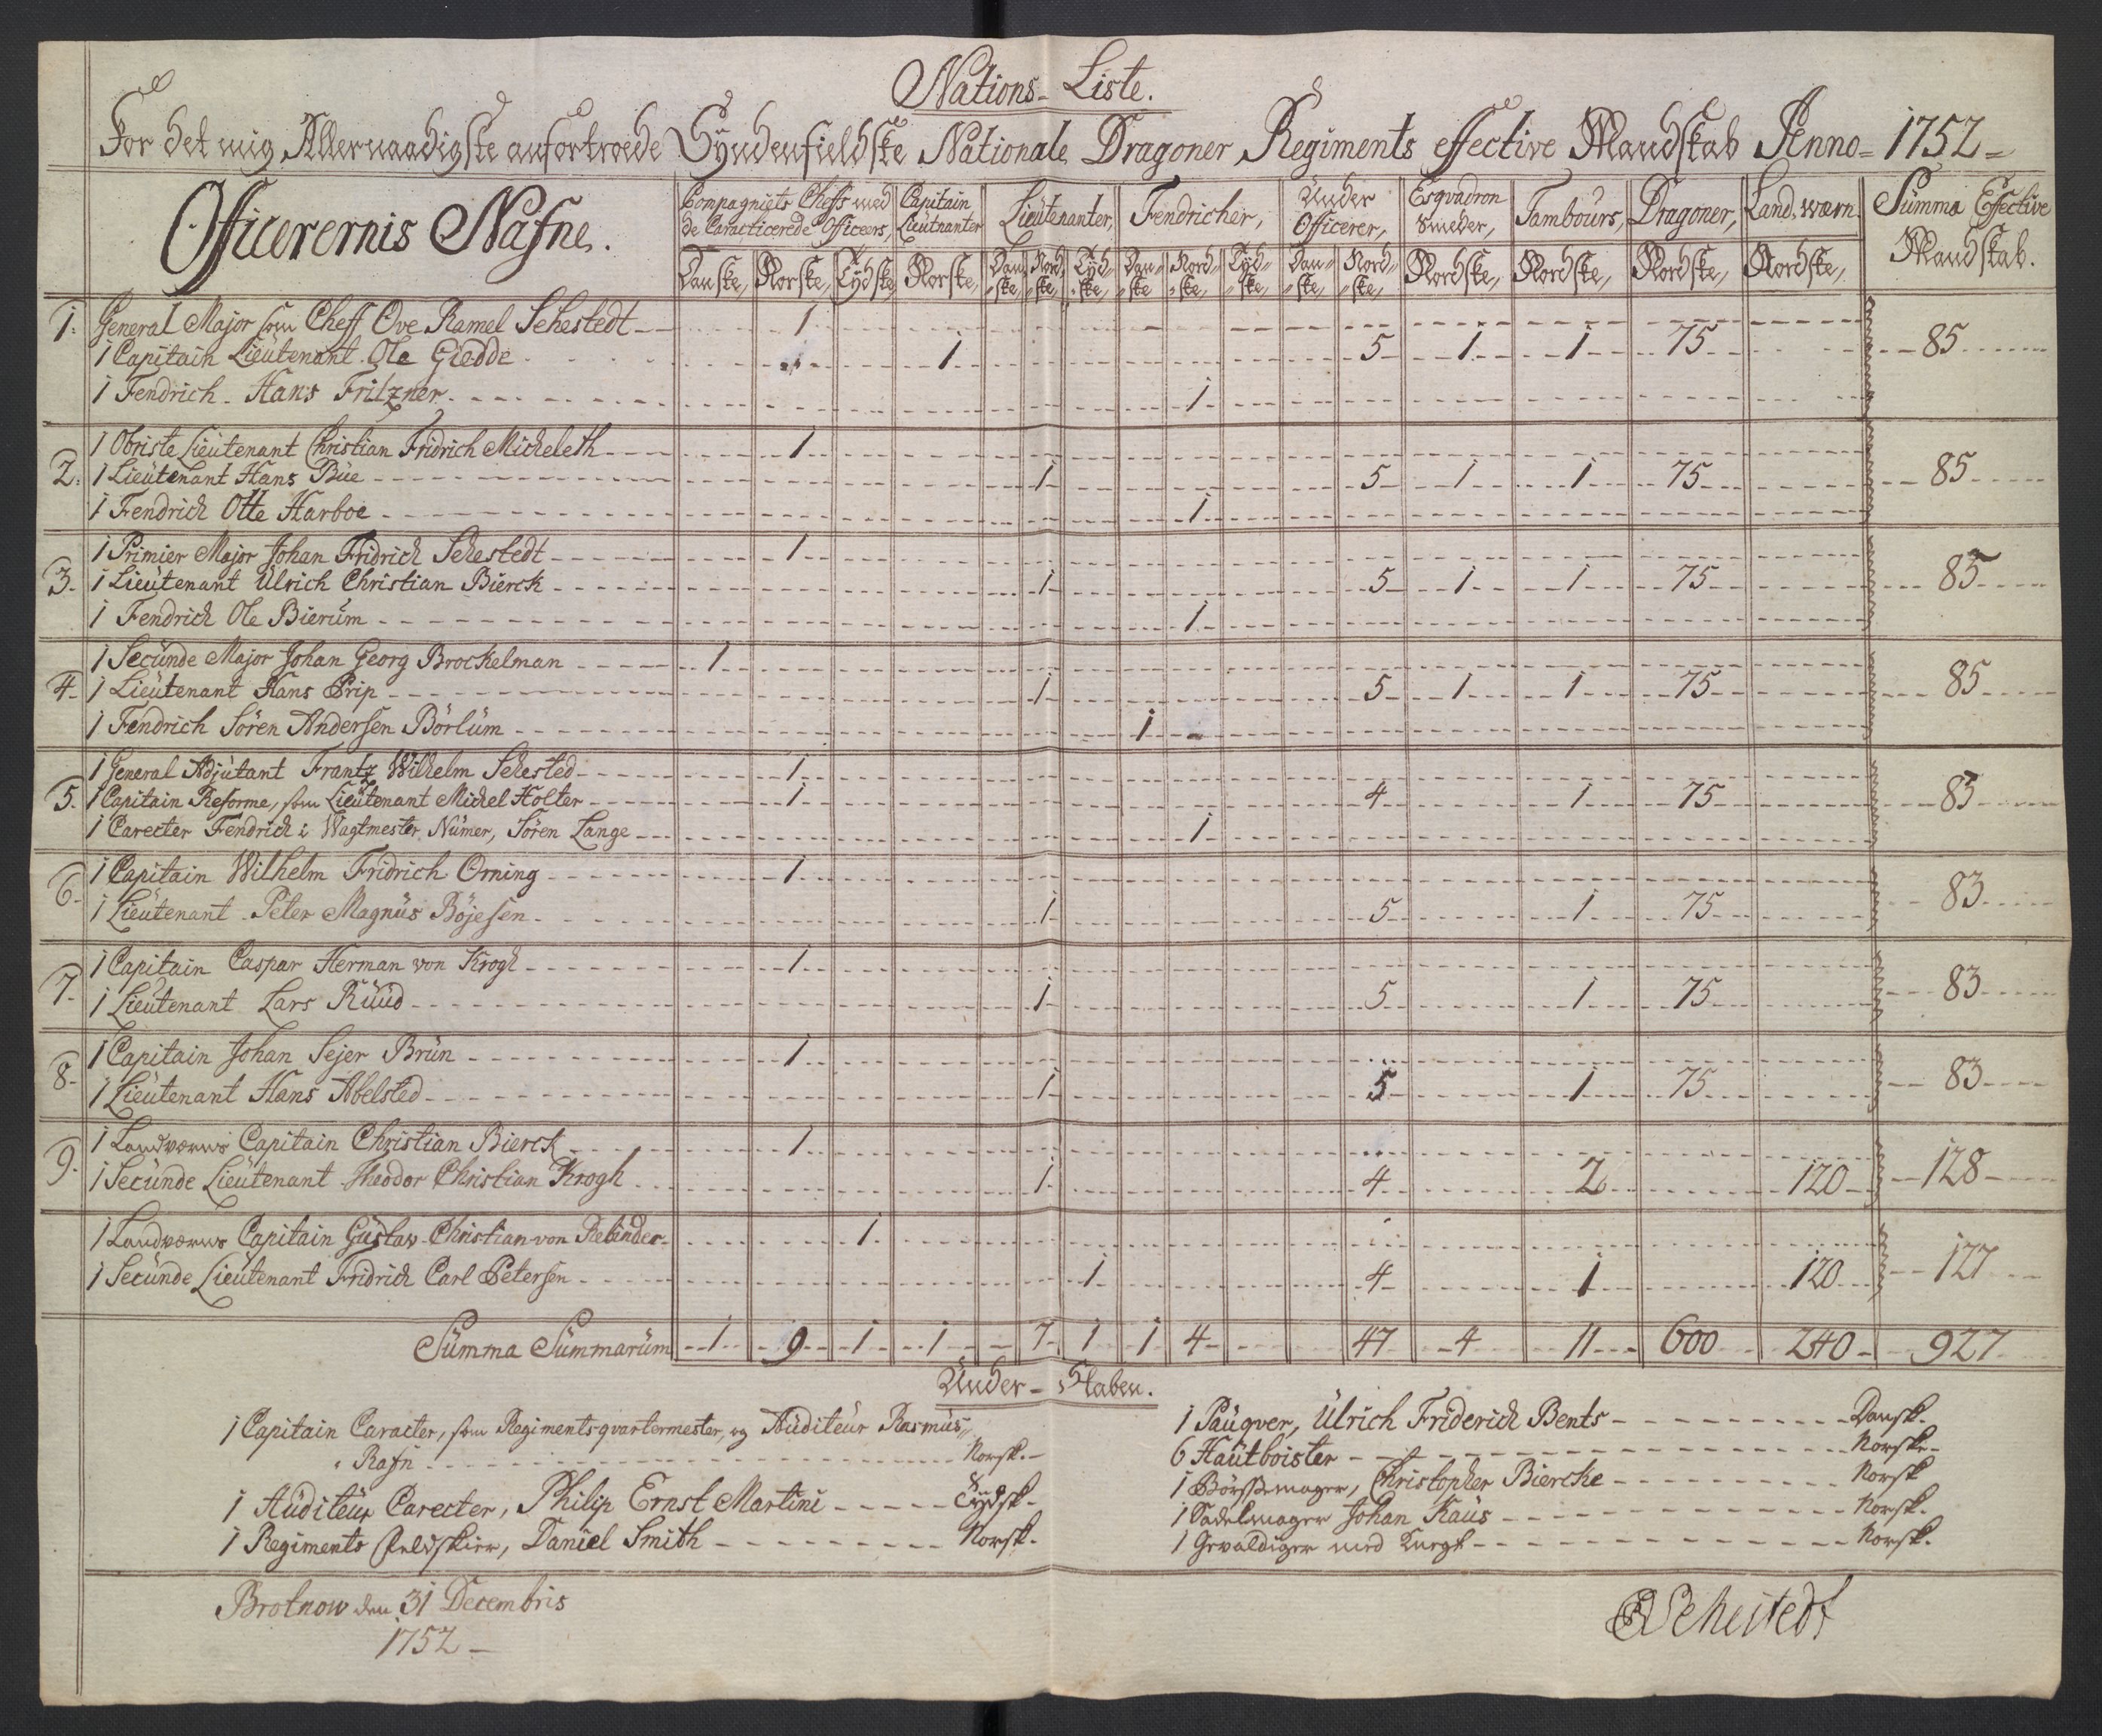 Nations- Liste.
For det mig Allernaadigste anfortroede Syndenfieldske Nationale Dragoner Regiments effective Mandskab Anno= 1752=
Officerernis Nafne. Compagniets Cheffs med de Caracticerede Officeers, Capitain Lieutnanter Lieutenanter, Fendricher, Under Officerer, Esqvadron Smeder, Tambours, Dragoner, Land wærn Summa Effective Mandskab.
Danske, Norske, Tydske Norske, Dan ske, Nord ske, Tyd ske, Dan ske Nord ske, Tyd ske, Dan ske, Nord ske, Nordske, Nordske, Nordske, Nordske,
1. General Major som Cheff Ove Ramel Sehestedt 1
1 Capitain Lieutenant Ole Giedde 1 5 1 1 75 85
1 Fendrich Hans Fritzner 1
1 Obriste Lieutenant Christian Fridrich Micheleth 1
2. 1 Lieutenant Hans Büe 1 5 1 1 75 85
1 Fendrich Otte Harboe 1
1 Primier Major Johan Fridrich Sehestedt 1
3. 1 Lieutenant Ulrich Christian Bierck 1 5 1 1 75 85
1 Fendrich Ole Bierum 1
1 Secunde Major Johan Georg Brockelman 1
4 1 Lieutenant Hans Prip 1 5 1 1 75 85
1 Fendrich Sören Andersen Börlüm 1
1 General Adjutant Frantz Wilhelm Sehested 1
5. 1 Capitain Reforme, som Lieutenant Michel Holter 1 4 1 75 83
1 Carecter Fendrich i Wagtmester Numer, Sören Lange 1
1 Capitain Wilhelm Fridrich Orning 1
6 1 Lieutenant Peter Magnüs Böjesen 1 5 1 75 83
1 Capitain Caspar Herman von Krogh 1
7 1 Lieutenant Lars Rüüd 1 5 1 75 83
1 Capitain Johan Sejer Brün 1
8 1 Lieutenant Hans Abelsted 1 5 1 75 83
1 Landværns Capitain Christian Bierck 1
9 1 Secunde Lieutenant Theodor Christian Krogh 1 4 2 120 128
1 Landværns Capitain Güstav Christian von Rebinder 1
1 Secunde Lieutenant Fridrich Carl Petersen 1 4 1 120 127
Summa Summarüm 1 9 1 1 7 1 1 4 47 4 11 600 240 927
Under-Staben.
1 Capitain Caracter, som Regimentsqvartermester, og Aüditeür Rasmüs
Rafn Norsk.
1 Aüditeür Carecter, Philip Ernst Martini Tydsk.
1 Regiments Feldskier, Daniel Smith Norsk.
1 Paüqver, Ulrich Friderich Bents Dansk.
6 Haütboister Norske
1 Börssemager, Christopher Biercke Norsk
1 Sadelmager Johan Kaüs Norsk.
1 Gevaldiger med Knegt Norsk.
Brotnow den 31 Decembris
1752
Sehestedt